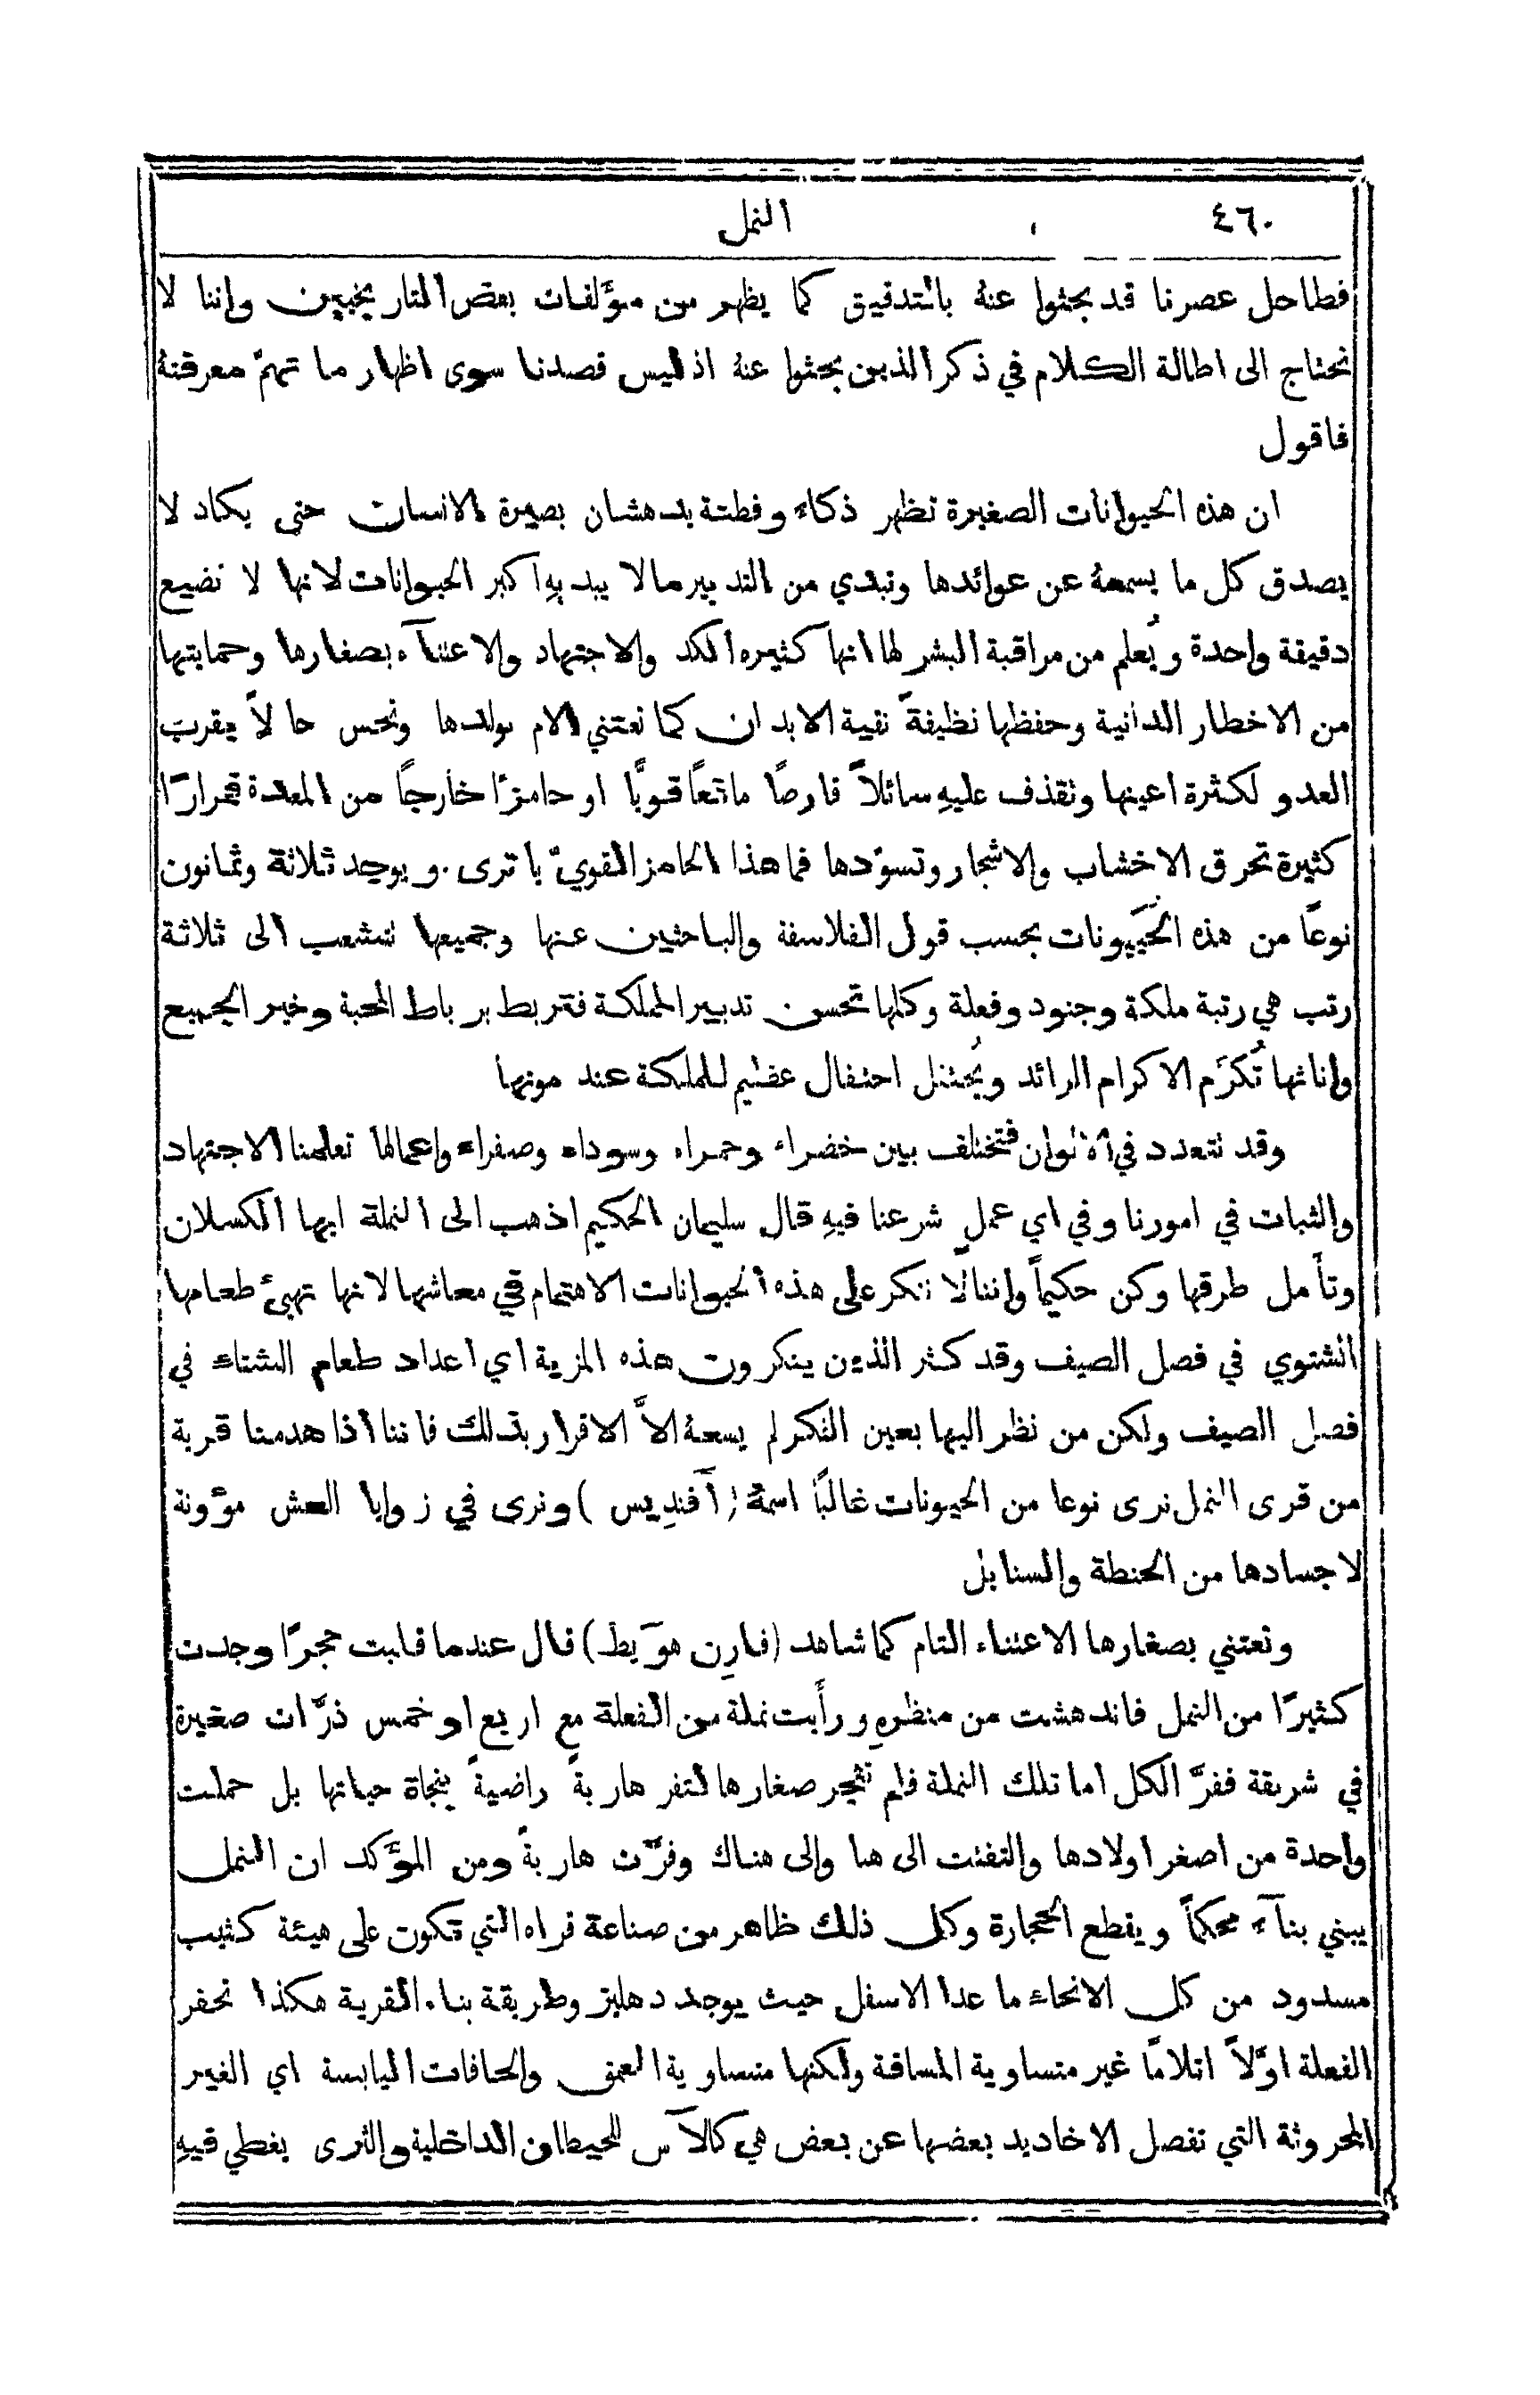 ٤٦٠ النمل
فطاحل عصرنا قد بحثوا عنهُ بالتدقيق كما يظهر من مؤَلفات بعض التاريخيين واننا لا
نحتاج الى اطالة الكلام في ذكر الذين بحثوا عنهُ اذ ليس قصدنا سوى اظهار ما تهمّ معرفتهُ
فاقول
ان هذه الحيوانات الصغيرة تظهر ذكاء وفطنة يدهشان بصيرة الانسان حتى يكاد لا
يصدق كل ما يسمعهُ عن عوائدها وتبدي من التدبير ما لا يبديهِ اكبر الحيوانات لانها لا تضيع
دقيقة واحدة ويُعلم من مراقبة البشر لها انها كثيره الكد والاجتهاد والاعتنآء بصغارها وحمايتها
من الاخطار الدانية وحفظها نظيفةً نقية الابدان كما تعتني الام بولدها وتحس حالاً بقرب
العدو لكثرة اعينها وتقذف عليهِ سائلاً قارصًا مائعًا قويًّا او حامزًا خارجًا من المعدة فمرارًا
كثيرة تحرق الاخشاب والاشجار وتسوّدها فما هذا الحامز القويّ يا ترى. ويوجد ثلاثة وثمانون
نوعًا من هذه الحُيَيونات بحسب قول الفلاسفة والباحثين عنها وجميعها تتشعب الى ثلاثة
رتب هي رتبة ملكة وجنود وفعلة وكلها تحسن تدبير المملكة فتربط برباط المحبة وخير الجميع
واناثها تُكرَم الاكرام الزائد ويُحتفل احتفال عظيم للملكة عند موتها
وقد تتعدد في الالوان فتختلف بين خضراء وحمراء وسوداء وصفراء واعمالها تعلمنا الاجتهاد
والثبات في امورنا وفي اي عملٍ شرعنا فيهِ قال سليمان الحكيم اذهب الى النملة ايها الكسلان
وتأَمل طرقها وكن حكيماً واننا لا ننكر على هذه الحيوانات الاهتمام في معاشها لانها تهيئ طعامها
الشتوي في فصل الصيف وقد كثر الذين ينكرون هذه المزية اي اعداد طعام الشتاء في
فصل الصيف ولكن من نظر اليها بعين الفكر لم يسعهُ الاَّ الاقرار بذلك فاننا اذا هدمنا قرية
من قرى النمل نرى نوعا من الحيونات غالبًا اسمهُ (آفنديس) ونرى في زوايا العش مؤونة
لاجسادها من الحنطة والسنابل
وتعتني بصغارها الاعتناء التام كما شاهد (فارِن هوَيط) قال عندما قلبت حجرًا وجدت
كثيرًا من النمل فاندهشت من منظرهِ ورأَيت نملة من الفعلة مع اربع او خمس ذرَّات صغيرة
في شريقة ففرَّ الكل اما تلك النملة فلم تهجر صغارها لتفر هاربةً راضيةً بنجاة حياتها بل حملت
واحدة من اصغر اولادها والتفتت الى هنا والى هناك وفرَّت هاربةً ومن المؤَكد ان النمل
يبني بنآء محكماً ويقطع الحجارة وكل ذلك ظاهر من صناعة قراه التي تكون على هيئة كثيب
مسدود من كل الانحاء ما عدا الاسفل حيث يوجد دهليز وطريقة بناء القرية هكذا تحفر
الفعلة اوّلاً اتلامًا غير متساوية المسافة ولكنها متساوية العمق والحافات اليابسة اي الغير
المحروثة التي تفصل الاخاديد بعضها عن بعض هي كالآس للحيطان الداخلية والثرى يغطي فيهِ